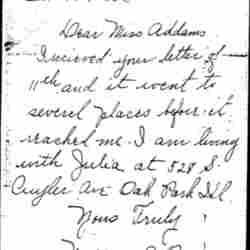 Dear Miss Addams
I recieved your letter of
11th and it went to
severel places before it
reached me. I am living
with Julia at 528 S.
Cuyler Av Oak Park Ill.
Yours Truly